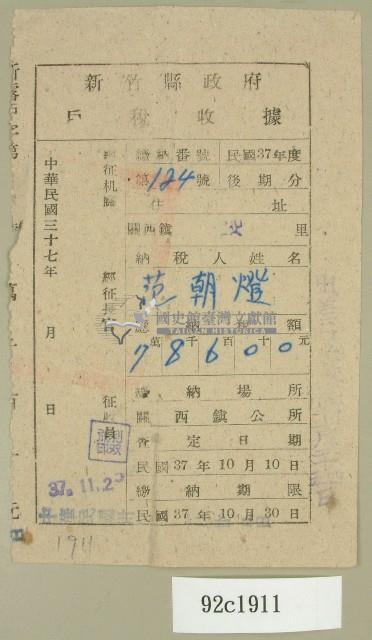 新竹縣政府
戶稅收據
繳納番號 民國37年度
第124號 後期分
住址
關西鎮 北 里
納稅人姓名
范朝燈
總納稅額
萬千百十元
78600
繳納場所
關西鎮公所
查定日期
民國37年10月10日
繳納期限
民國37年10月30日
經征机關
經征長官
征收員
37.11.23
中華民國三十七年 月 日
國史館臺灣文獻館
TAIWAN HISTORICA
1911
92c1911